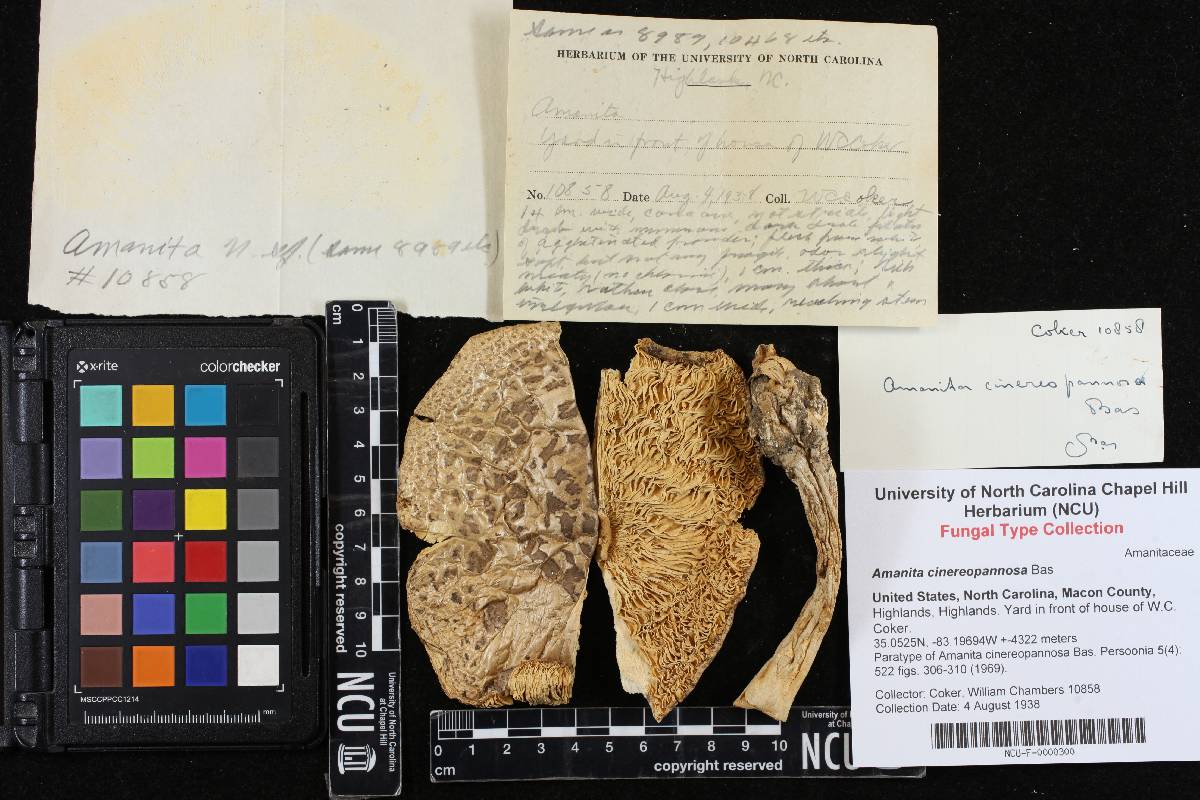 Same as 8989, 10468 etc.
HERBARIUM OF THE UNIVERSITY OF NORTH CAROLINA
Highlands NC.
Amanita
Yard in front of house of WCCoker
No. 10858 Date Aug. 4, 1938 Coll. WCCoker
14 cm. wide, convex, not striate, light
drab with
of agglutinated powder; flesh
soft, but not very odor slight
meaty (no chlorine), 1 cm. thick; Gills
white, rather close, many short,
irregular, 1 cm wide, reaching stem
Amanita n. sp. (same 8989 etc)
# 10858
Coker 10858
Amanita cinereopannosa
Bas
Bas
University of North Carolina Chapel Hill
Herbarium (NCU)
Fungal Type Collection
Amanitaceae
Amanita cinereopannosa Bas
United States, North Carolina, Macon County,
Highlands, Highlands. Yard in front of house of W.C.
Coker.
35.0525N, -83.19694W +-4322 meters
Paratype of Amanita cinereopannosa Bas. Persoonia 5(4):
522 figs. 306-310 (1969).
Collector: Coker, William Chambers 10858
Collection Date: 4 August 1938
NCU-F-0000300
x-rite colorchecker
MSCCPPCC1214
mm
0 cm
1
2
3
4
5
6
7
8
9
10
copyright reserved
NCU
University of North Carolina
at Chapel Hill
0 1 2 3 4 5 6 7 8 9 10
cm
copyright reserved
University of
at Cha
NCU